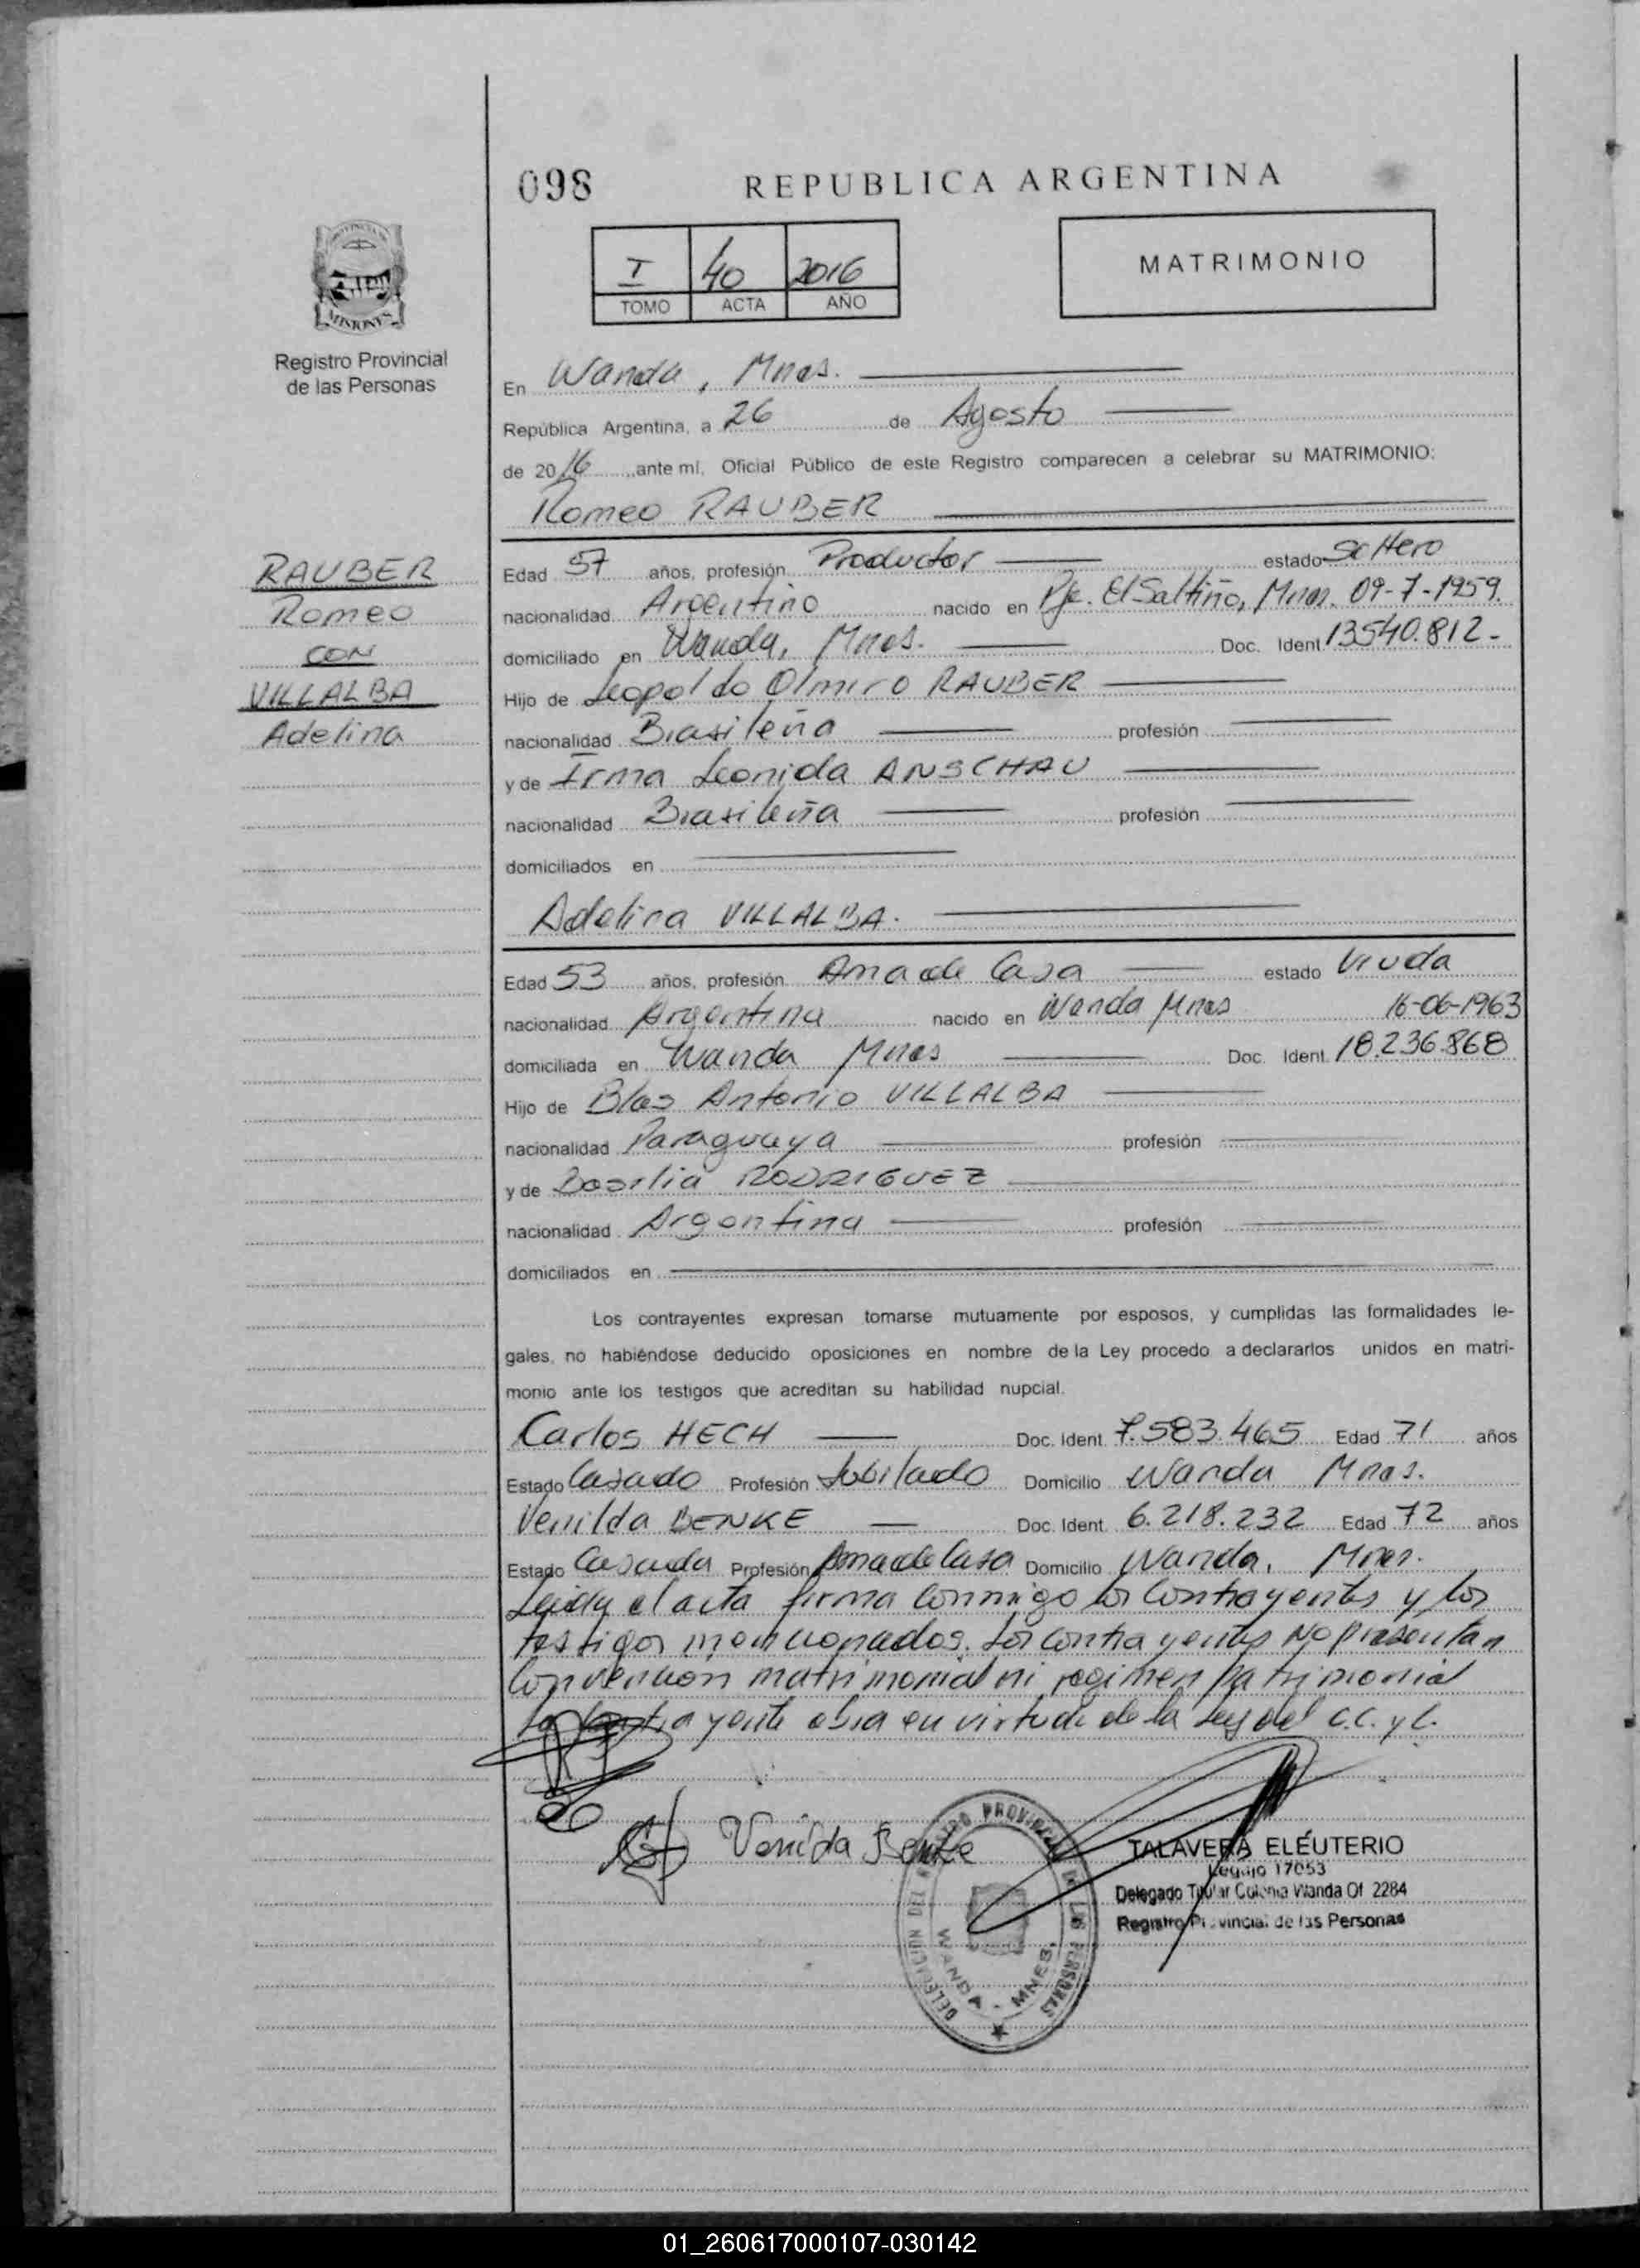 098 REPUBLICA ARGENTINA
PROVINCIA DE
MISIONES
Registro Provincial
de las Personas
I 40 2016
TOMO ACTA AÑO
MATRIMONIO
En Wanda, Mnes.
República Argentina, a 26 de Agosto
de 2016 ante mí, Oficial Público de este Registro comparecen a celebrar su MATRIMONIO:
Romeo RAUBER
RAUBER
Romeo
CON
VILLALBA
Adelina
Edad 57 años, profesión Productor estado Soltero
nacionalidad Argentino nacido en Pje. El Saltiño, Mnes. 09-7-1959.
domiciliado en Wanda, Mnes. Doc. Ident 13540.812-
Hijo de Leopoldo Olmiro RAUBER
nacionalidad Brasileña profesión
y de Irma Leonida ANSCHAU
nacionalidad Brasileña profesión
domiciliados en
Adelina VILLALBA.
Edad 53 años, profesión Ama de Casa estado Viuda
nacionalidad Argentina nacido en Wanda Mnes 16-06-1963
domiciliada en Wanda Mnes Doc. Ident. 18.236.868
Hijo de Blas Antonio VILLALBA
nacionalidad Paraguaya profesión
y de Basilia RODRIGUEZ
nacionalidad Argentina profesión
domiciliados en
Los contrayentes expresan tomarse mutuamente por esposos, y cumplidas las formalidades le-
gales, no habiéndose deducido oposiciones en nombre de la Ley procedo a declararlos unidos en matri-
monio ante los testigos que acreditan su habilidad nupcial.
Carlos HECH Doc. Ident. 7.583.465 Edad 71 años
Estado Casado Profesión Jubilado Domicilio Wanda Mnes.
Venilda BENKE Doc. Ident. 6.218.232 Edad 72 años
Estado Casada Profesión Ama de Casa Domicilio Wanda, Mnes.
Leída el acta firma conmigo los contrayentes y los
testigos mencionados. Los contrayentes No presentan
Convención matrimonial ni regimen patrimonial
yente en virtud de la Ley del C.C. y C.
Venilda Benke
DELEGACIÓN DEL REGISTRO PROVINCIAL DE LAS PERSONAS
WANDA - MNES.
TALAVERA ELEUTERIO
Legajo 17053
Delegado Titular Colonia Wanda Of 2284
Registro Provincial de las Personas
01_260617000107-030142